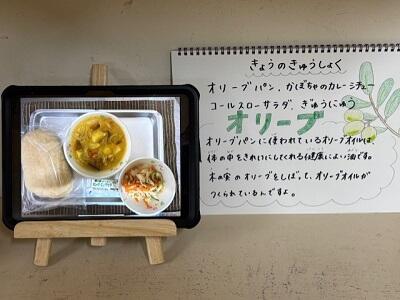 きょうのきゅうしょく
オリーブパン、かぼちゃのカレーシチュー
コールスローサラダ、ぎゅうにゅう
オリーブ
オリーブパンに使われているオリーブオイルは、
体の中をきれいにしてくれる健康によい油です。
木の実のオリーブをしぼって、オリーブオイルが
つくられているんですよ。